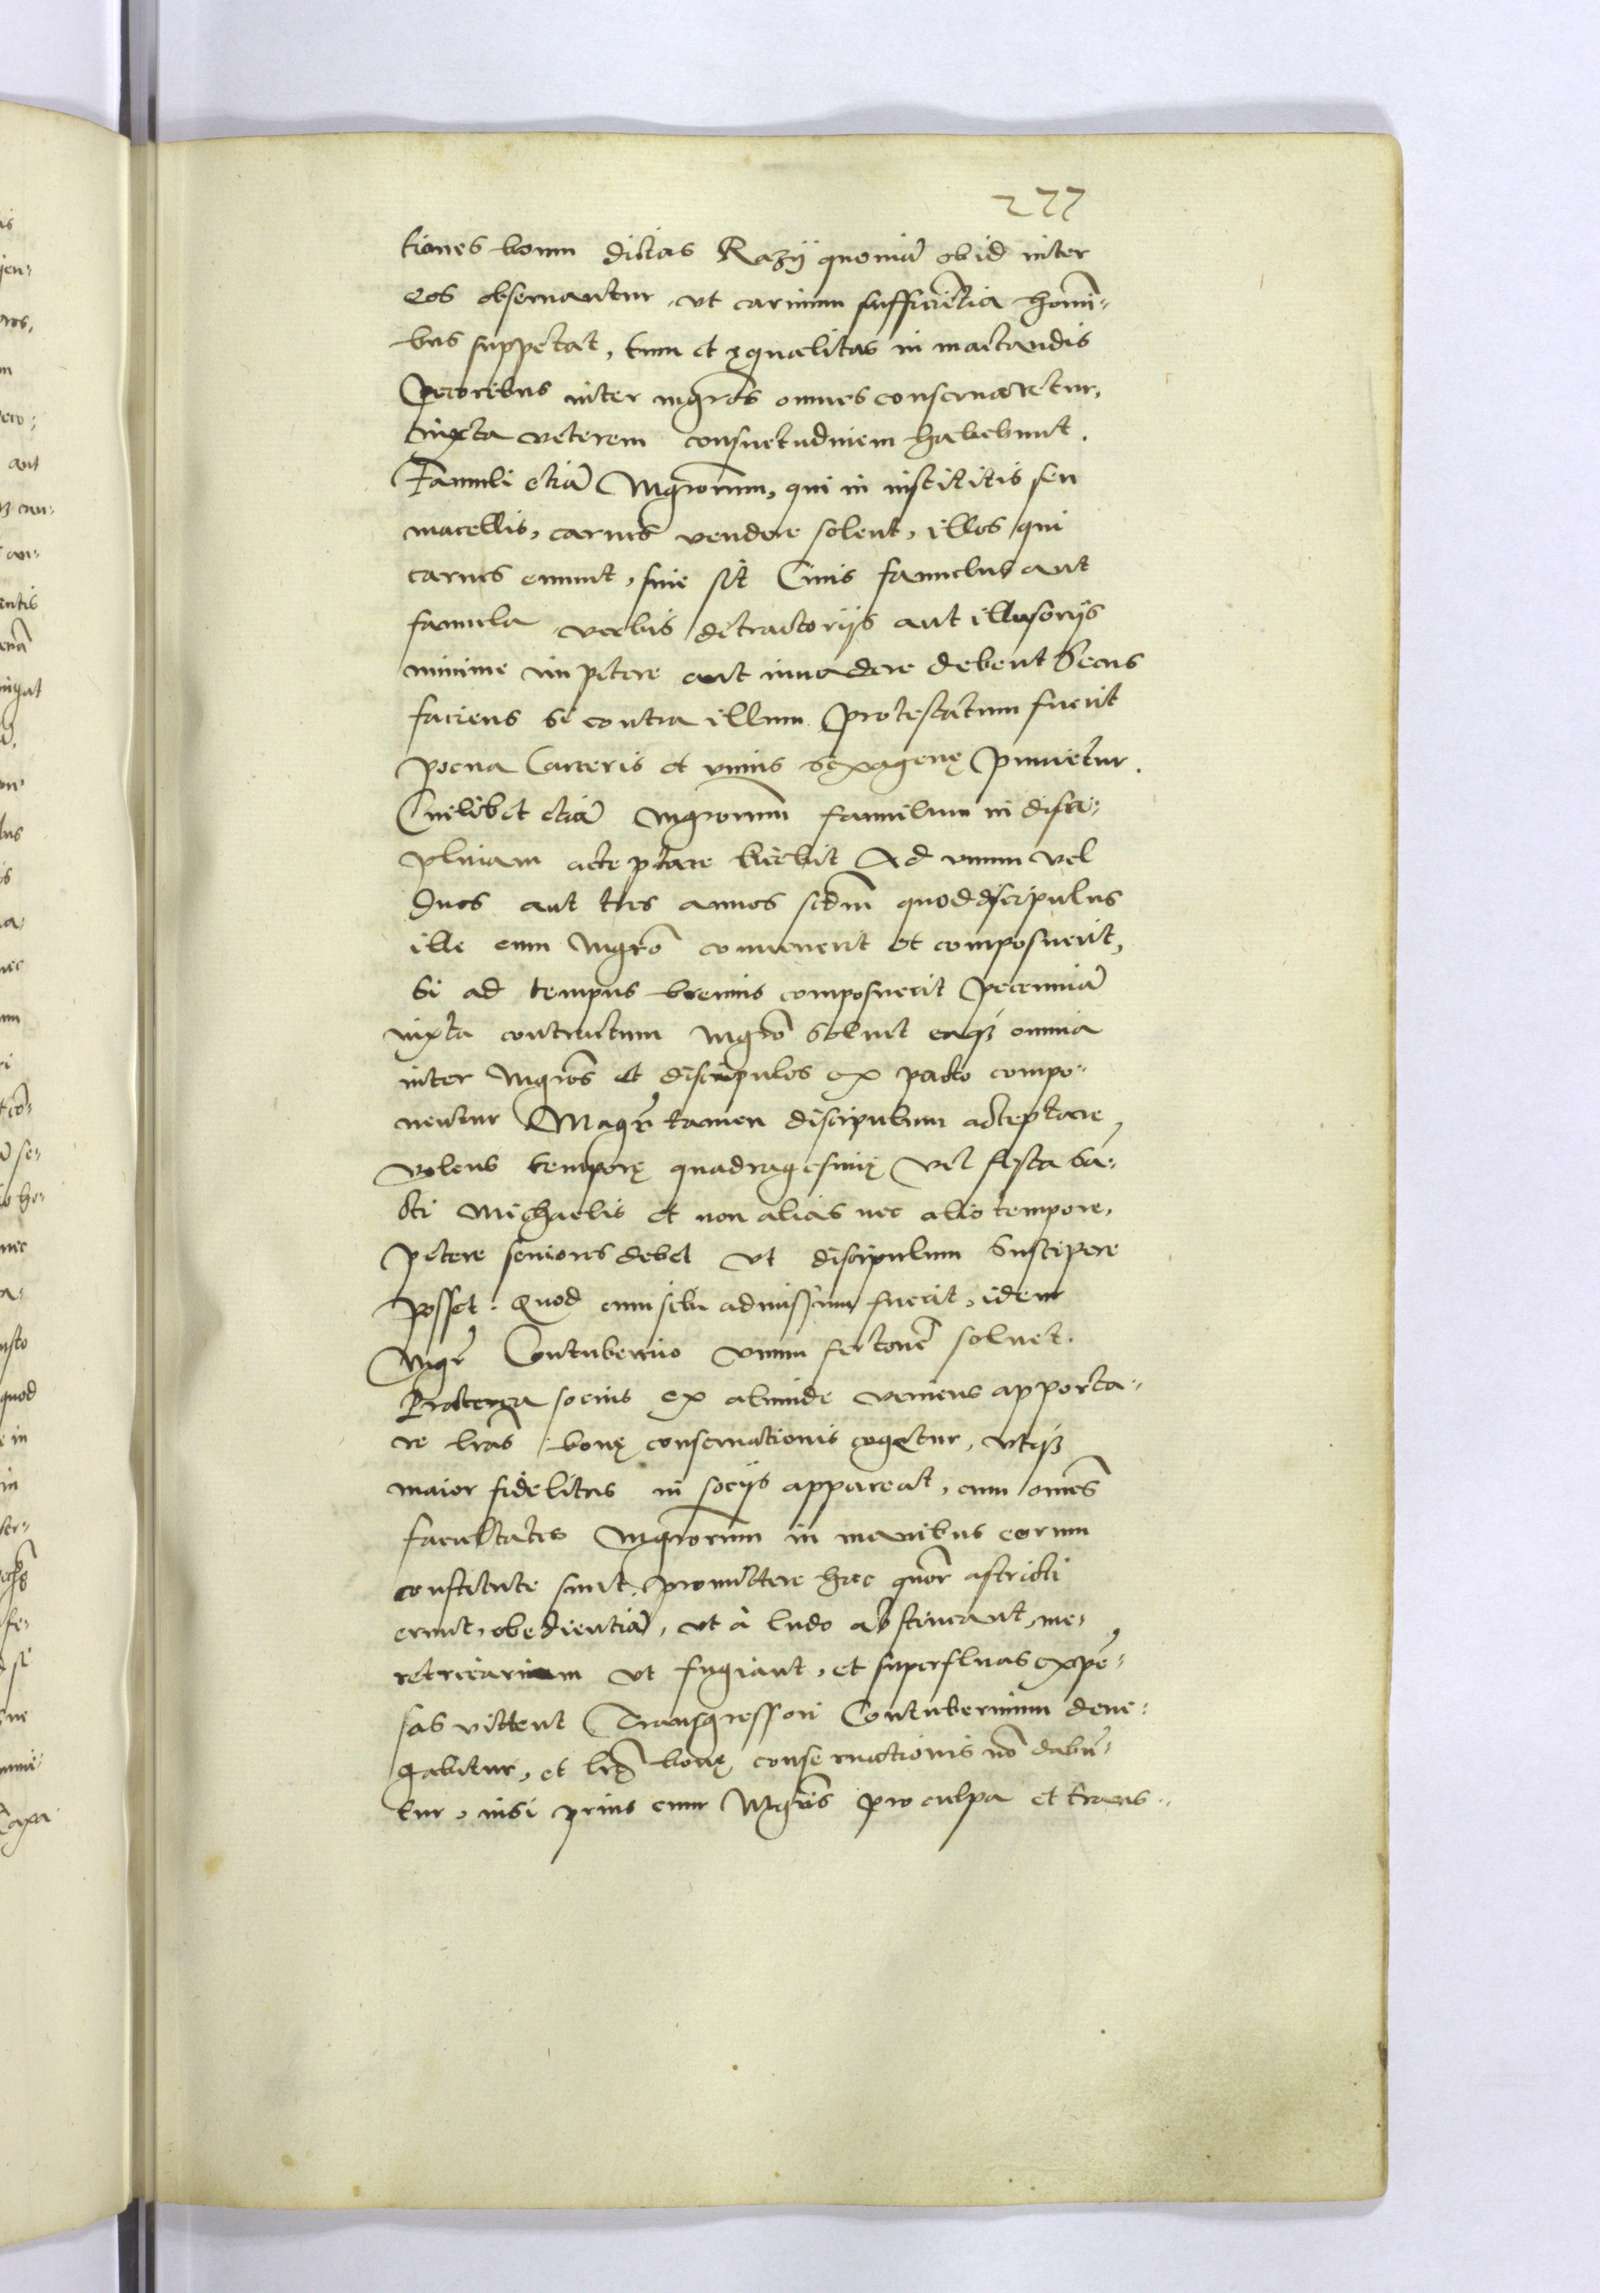 277
tiones boum dictas Razÿ quoniã ob id inter
eos obseruantur, ut carnium sufficiẽtia homi-
bus suppetat, tum et ęqualitas in mactandis
Pecoribus inter mgr̃os omnes conseruaretur,
iuxta veterem consuetudinem habebunt.
Famuli etiã Mgr̃orum, qui in institis seu
macellis, carnes vendere solent, illos qui
carnes emunt, siue sit Ciuis famulus aut
famula verbis detractorijs aut illusorijs
minime impetere aut inuadere debent Secus
faciens si contra illum protestatum fuerit
poena Carceris et vnius sexagenę punietur.
Cuilibet etiã mgr̃orum famulum in disci-
plinam acceptare licebit Ad vnum vel
duos aut tres annos scdm̃ quod discipulus
ille cum Mgr̃o conuenerit et composuerit,
Si ad tempus breuius composuerit pecuniã
iuxta contractum Mgr̃o soluit eaqꝫ omnia
inter Mgr̃os et discipulos ex pacto compo-
nentur Magr̃ tamen discipulum acceptare
volens temporę quadragesimę vel festa Sã-
cti Michaelis et non alias nec alio tempore,
petere seniores debet ut discipulum suscipere
posset. Quod cum sibi admissum fuerit, idem
Mgr̃ Contubernio vnum fertonẽ soluet.
Praeterea socius ex aliunde veniens apporta-
re lr̃as bonę conseruationis cogetur, vtqꝫ
maior fidelitas in socijs appareat, cum om̃es
facultates Mgr̃orum in manibus eorum
constitute sunt, promittere haec astricti
erunt, obedientiã, ut à ludo abstineant, me-
retricarium ut fugiant, et superfluas expẽ-
sas vittent Transgressori Contubernium dene-
gabitur, et lr̃ę bonę conseruationis nõ dabũ-
tur, nisi prius cum Mgr̃is pro culpa et trans-